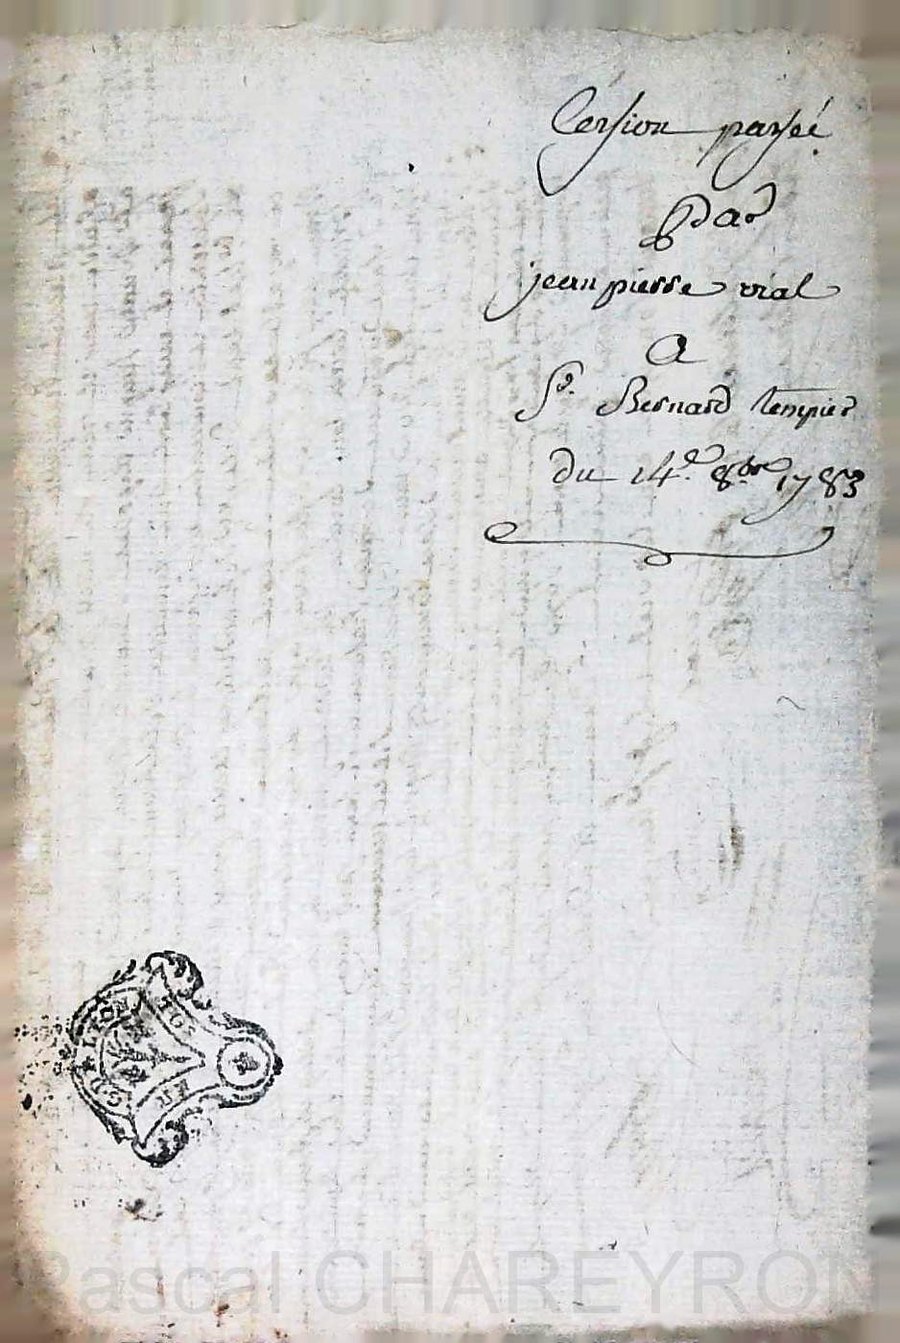 Cession passée
Par
jean pierre vial
A
Sr. Bernard tempier
du 14e. 8bre 1783
LYON
Pascal CHAREYRON